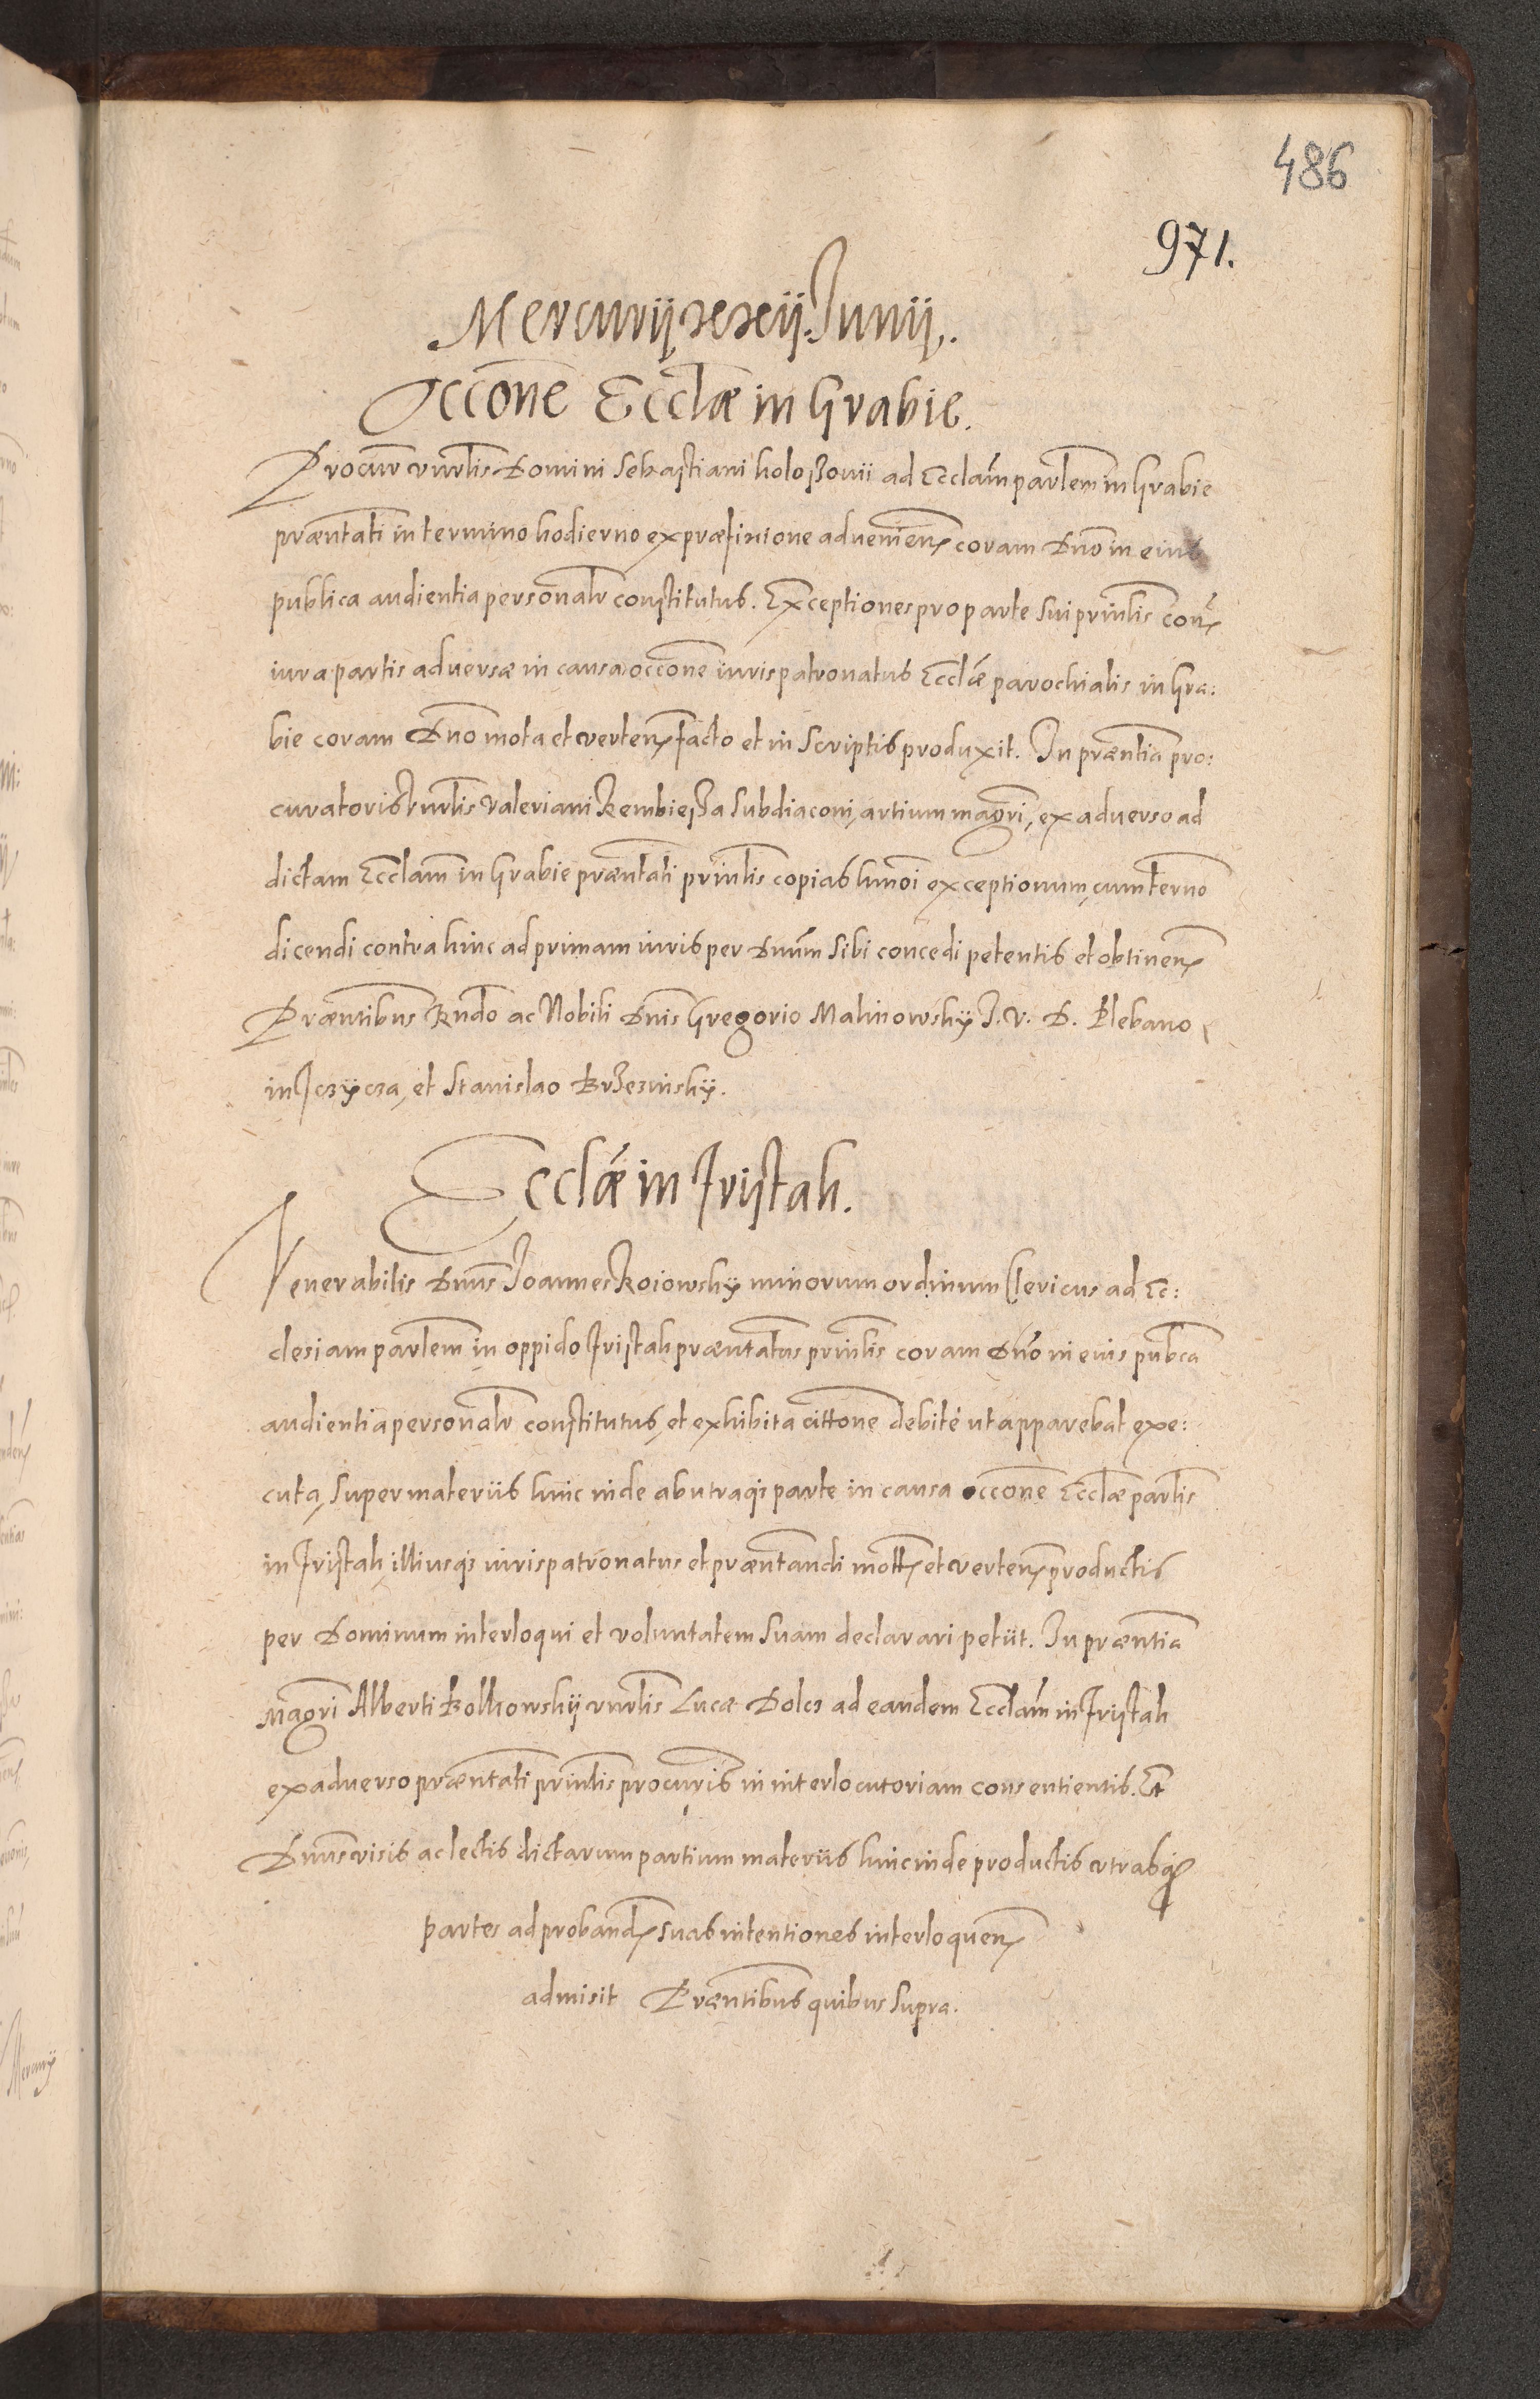 486
971.
Mercurij xxij Junij.
Occone Ecclæ in Grabie.
Procur vnrlis Domini Sebastiani holoßouii ad Ecclam parlem in Grabie
præntati in termino hodierno ex præfinione adueniens coram Dno in eius
publica audientia personalr constitutus. Exceptiones pro parte sui prinlis con
iura partis aduersæ in causa occone iurispatronatus Ecclæ parochialis in Gra:
bie coram Dno mota et verten facto et in scriptis produxit. In præntia pro:
curatoris vnrlis Valeriani Rembießa Subdiaconi, artium magri, ex aduerso ad
dictam Ecclam in Grabie præntati prinlis copias hmoi exceptionum, cum terno
dicendi contra hinc ad primam iuris per Dnum sibi concedi petentis et obtinen
Præntibus Rndo ac Nobili Dnis Gregorio Malinowsky J. V. D. Plebano
in Jczijcza, et Stanislao Brzezinskij.
Ecclæ in Fristak.
Venerabilis Dnus Joannes Roiowsky minorum ordinum Clericus ad Ec:
clesiam parlem in oppido Fristak præntatus prinlis coram Dno in eius pubca
audientia personalr constitutus, et exhibita cittone debité ut apparebat exe:
cuta, super materiis hinc inde ab utraq parte in causa occone Ecclæ parlis
in Fristak, illiusq iurispatronatus et præntandi mott et verten productis
per Dominum interloqui et voluntatem suam declarari petiit. In præntia
Magri Alberti Bolkowskij vnrlis Lucæ Dolcz ad eandem Ecclam in Fristak
ex aduerso præntati prinlis procuris in interlocutoriam consentientis. Et
Dnus visis ac lectis dictarum partium materiis hinc inde productis vtrasq
partes ad proband suas intentiones interloquen
admisit Præntibus quibus supra.